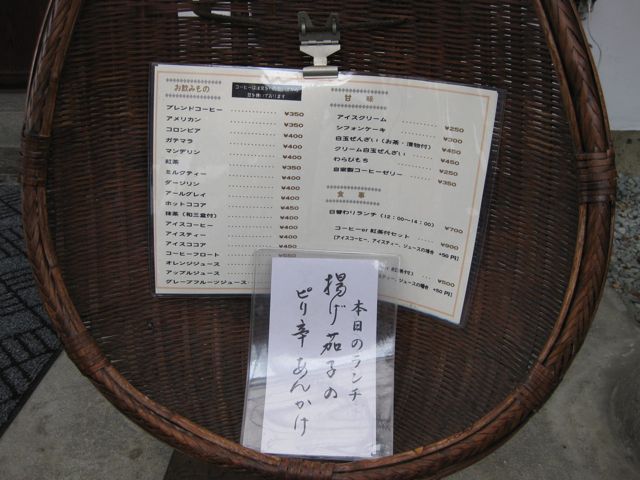 お飲みもの
ブレンドコーヒー ¥350
アメリカン ¥350
コロンビア ¥400
ガテマラ ¥400
マンデリン ¥400
紅茶 ¥350
ミルクティー ¥400
ダージリン ¥400
アールグレイ ¥400
ホットココア ¥450
抹茶(和三盆付) ¥400
アイスコーヒー ¥400
アイスティー ¥400
アイスココア ¥450
コーヒーフロート ¥550
オレンジジュース
アップルジュース
グレープフルーツジュース
甘味
アイスクリーム ¥250
シフォンケーキ ¥300
白玉ぜんざい(お茶・漬物付) ¥450
クリーム白玉ぜんざい ¥450
わらびもち ¥250
自家製コーヒーゼリー ¥350
食事
日替わりランチ(12:00〜14:00) ¥700
コーヒーor紅茶付セット ¥900
[アイスコーヒー、アイスティー、ジュースの場合 +50円]
紅茶付) ¥500
ィー、ジュースの場合 +50円]
本日のランチ
揚げ茄子の
ピリ辛あんかけ